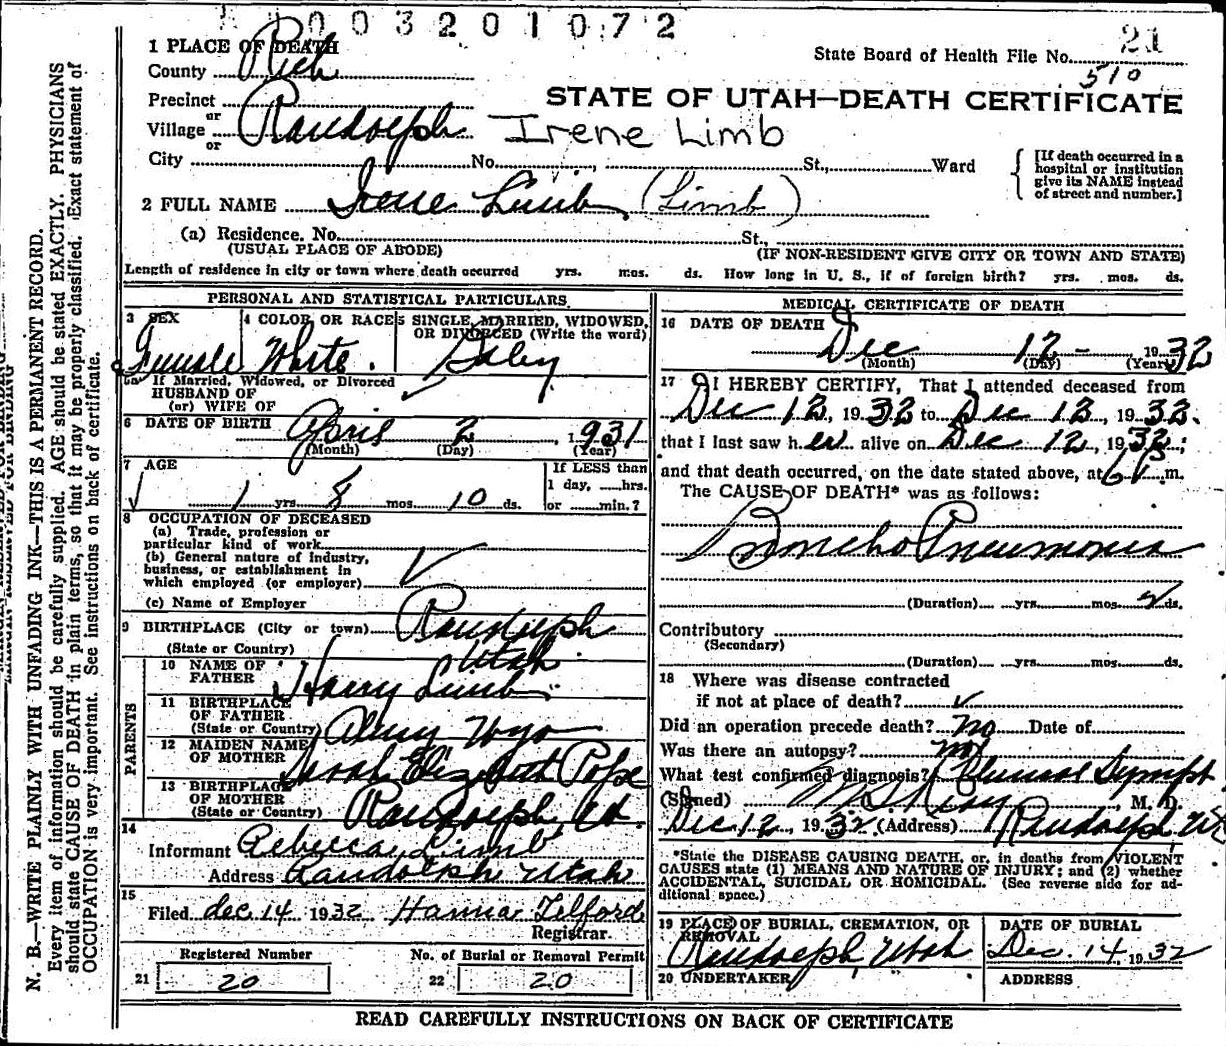 003201072
1 PLACE OF DEATH
State Board of Health File No. 21
County Rich
510
Precinct
STATE OF UTAH—DEATH CERTIFICATE
or
Village Randolph Irene Limb
or
City No. St., Ward
[If death occurred in a hospital or institution give its NAME instead of street and number.]
2 FULL NAME Irene Limb (Limb)
(a) Residence, No. St.,
(USUAL PLACE OF ABODE) (IF NON-RESIDENT GIVE CITY OR TOWN AND STATE)
Length of residence in city or town where death occurred yrs. mos. ds. How long in U. S., if of foreign birth? yrs. mos. ds.
PERSONAL AND STATISTICAL PARTICULARS
3 SEX 4 COLOR OR RACE 5 SINGLE, MARRIED, WIDOWED, OR DIVORCED (Write the word)
Female White. Baby
5a If Married, Widowed, or Divorced
HUSBAND OF
(or) WIFE OF
6 DATE OF BIRTH April 2, 1931
(Month) (Day) (Year)
7 AGE If LESS than
1 yrs. 8 mos. 10 ds. 1 day, hrs.
or min.?
8 OCCUPATION OF DECEASED
(a) Trade, profession or
particular kind of work
(b) General nature of industry,
business, or establishment in
which employed (or employer)
(c) Name of Employer
9 BIRTHPLACE (City or town) Randolph
(State or Country) Utah.
PARENTS
10 NAME OF FATHER Harry Limb
11 BIRTHPLACE OF FATHER
(State or Country) Almy Wyo
12 MAIDEN NAME OF MOTHER Sarah Elizabeth Pope
13 BIRTHPLACE OF MOTHER
(State or Country) Randolph Ut.
14
Informant Rebecca Limb
Address Randolph Utah
15
Filed Dec 14 1932 Hannar Telford
Registrar.
Registered Number No. of Burial or Removal Permit
21 20 22 20
MEDICAL CERTIFICATE OF DEATH
16 DATE OF DEATH
Dec 12 - 1932
(Month) (Day) (Year)
17 I HEREBY CERTIFY, That I attended deceased from
Dec 12, 1932 to Dec 12, 1932.
that I last saw her alive on Dec 12, 1932;
and that death occurred, on the date stated above, at m.
The CAUSE OF DEATH* was as follows:
Broncho Pneumonia
(Duration) yrs. mos. 2 ds.
Contributory
(Secondary)
(Duration) yrs. mos. ds.
18 Where was disease contracted
if not at place of death?
Did an operation precede death? No Date of
Was there an autopsy? no
What test confirmed diagnosis? Sympt
(Signed) , M. D.
Dec 12, 1932 (Address) Randolph Ut
*State the DISEASE CAUSING DEATH, or, in deaths from VIOLENT
CAUSES state (1) MEANS AND NATURE OF INJURY; and (2) whether
ACCIDENTAL, SUICIDAL OR HOMICIDAL. (See reverse side for ad-
ditional space.)
19 PLACE OF BURIAL, CREMATION, OR REMOVAL DATE OF BURIAL
Randolph, Utah Dec. 14 1932
20 UNDERTAKER ADDRESS
READ CAREFULLY INSTRUCTIONS ON BACK OF CERTIFICATE
N. B.—WRITE PLAINLY WITH UNFADING INK—THIS IS A PERMANENT RECORD.
Every item of information should be carefully supplied. AGE should be stated EXACTLY. PHYSICIANS
should state CAUSE OF DEATH in plain terms, so that it may be properly classified. Exact statement of
OCCUPATION is very important. See instructions on back of certificate.